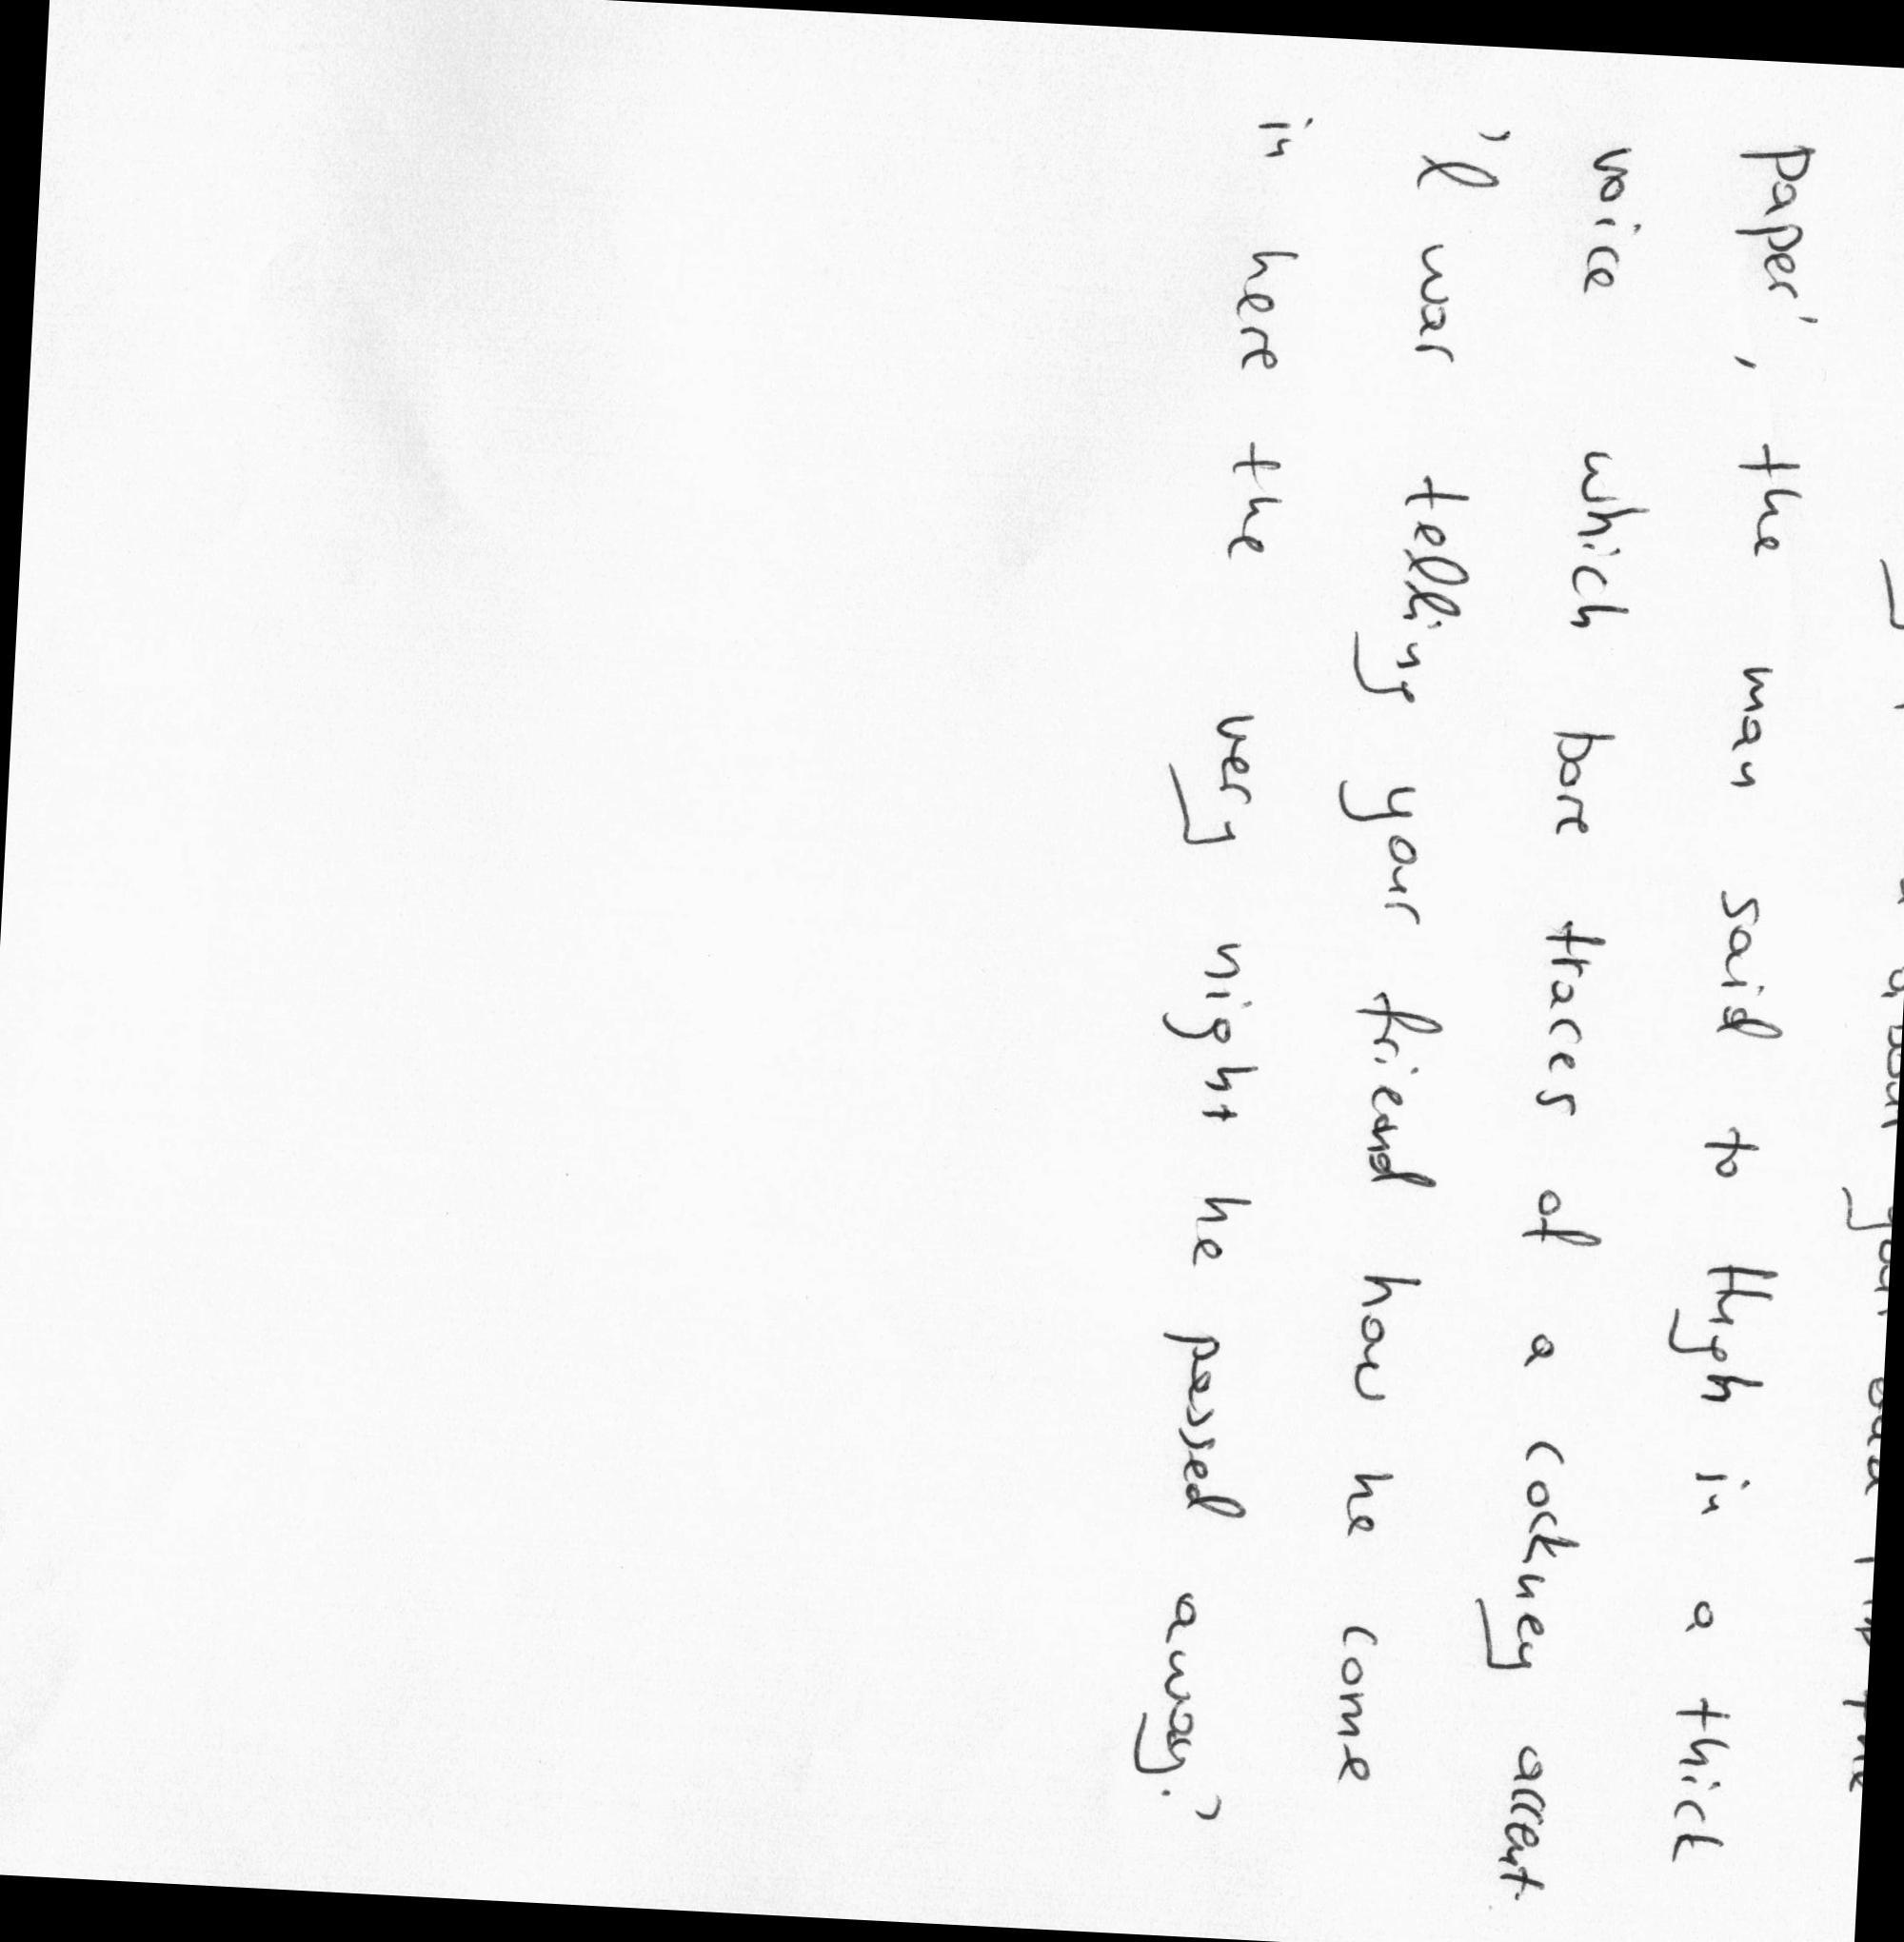 about your in the
paper', the man said to Thygh in a thick
voice which bore traces of a cockney accent.
'I was telling your friend how he come
in here the very night he passed away.'